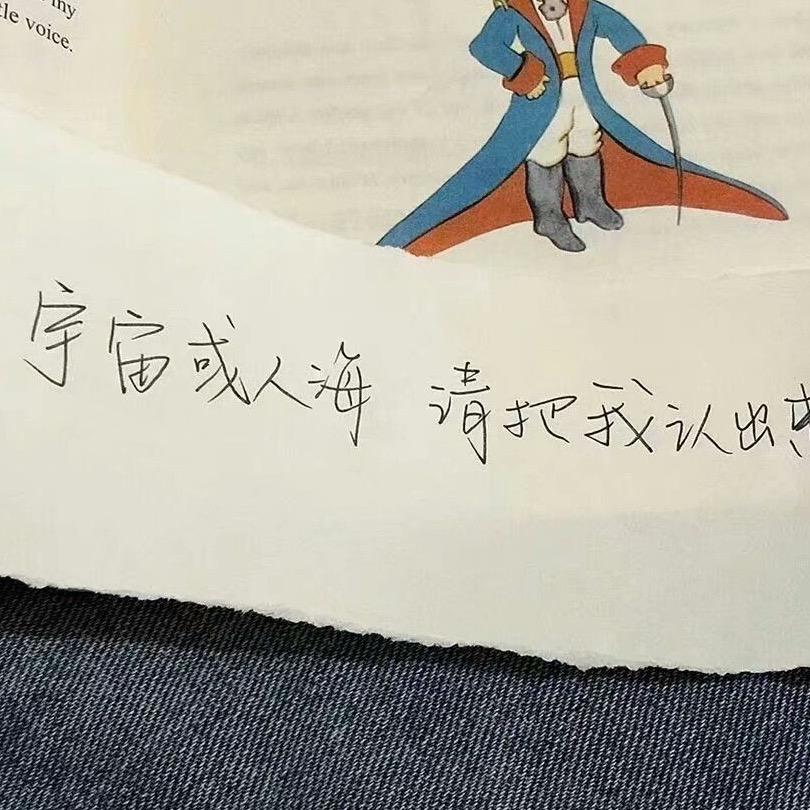 my
tle voice.
宇宙或人海 请把我认出来